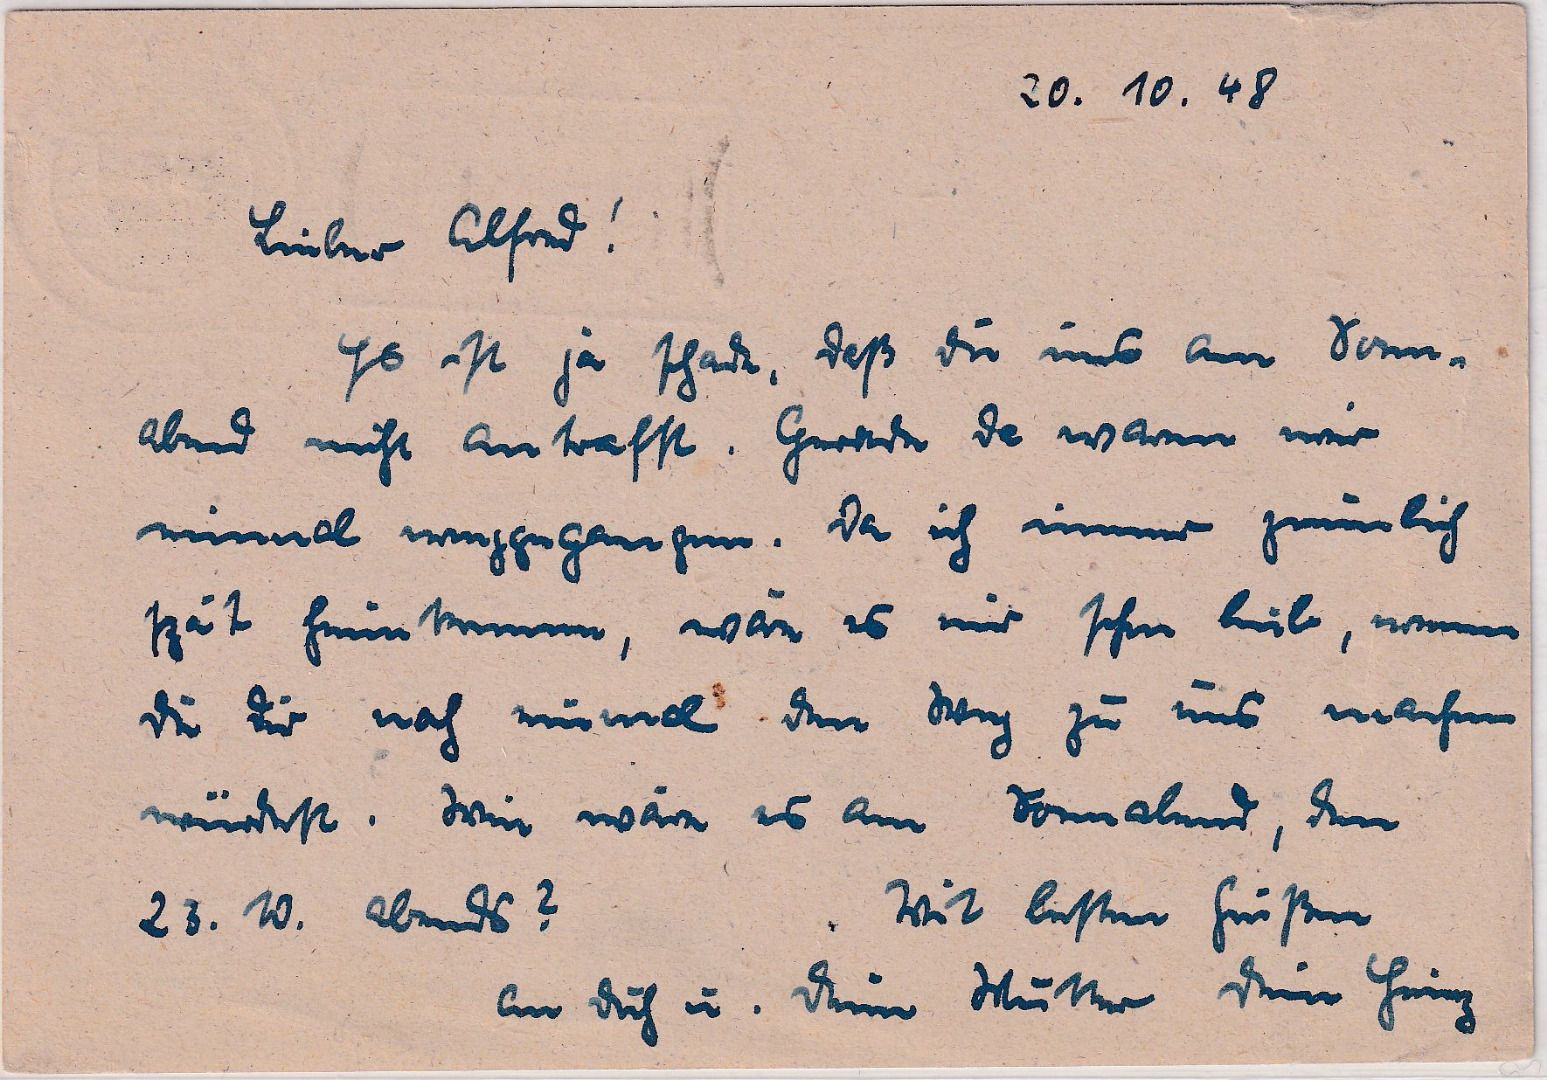 20. 10. 48
Lieber Alfred!
Es ist ja schade, daß du uns am Sonn-
abend nicht antrafst. Gerade da waren wir
einmal weggegangen. Da ich immer ziemlich
spät heimkomme, wäre es mir schon lieb, wenn
du dir noch einmal den Weg zu uns machen
würdest. Wie wäre es am Sonnabend, den
23. 10. abends? Mit besten Grüßen
an dich u. deine Mutter dein Heinz